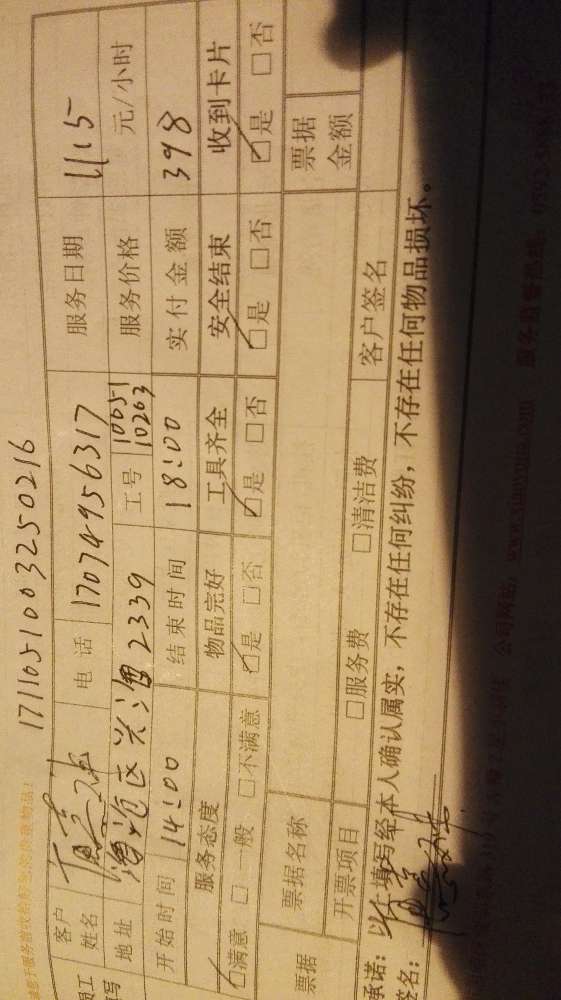 1711051003250216
客户姓名 电话 17074956317 服务日期 11.15
地址 海沧区兴港 2339 工号 10051 10263 服务价格 元/小时
开始时间 14:00 结束时间 18:00 实付金额 398
服务态度 物品完好 工具齐全 安全结束 收到卡片
☑满意 □一般 □不满意 ☑是 □否 ☑是 □否 ☑是 □否 ☑是 □否
票据 票据名称 票据金额
开票项目 □服务费 □清洁费 客户签名
承诺：以上填写经本人确认属实，不存在任何纠纷，不存在任何物品损坏。
签名：
公司网站：